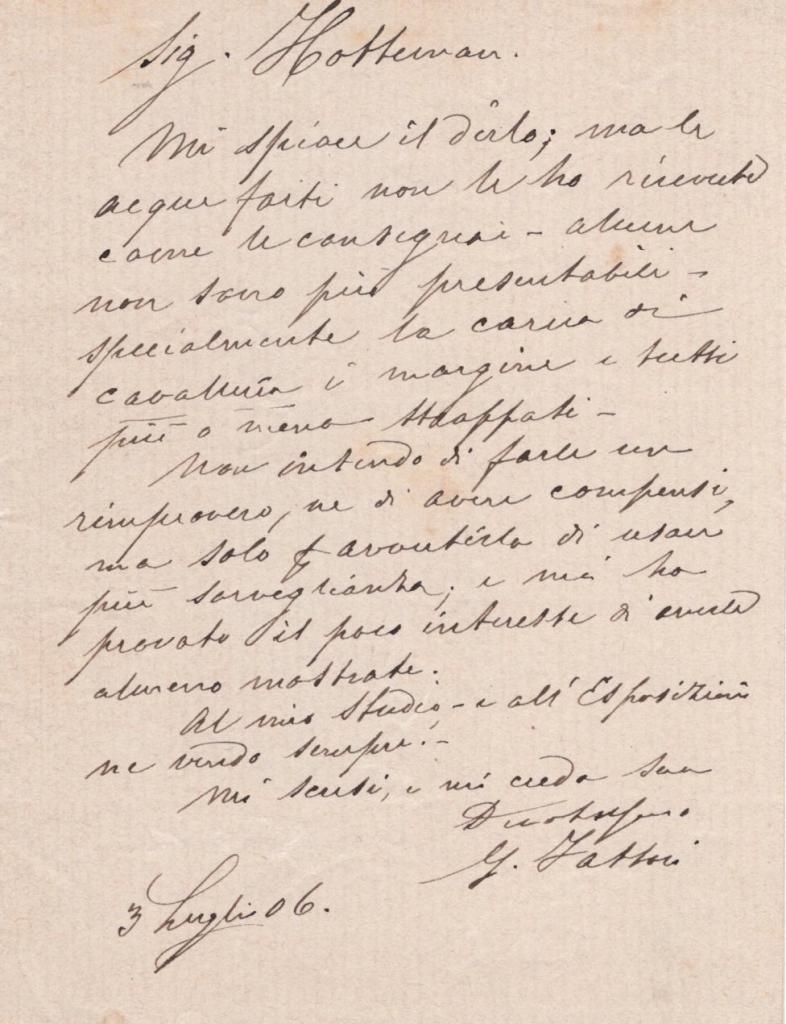 Sig. Hotteman.
Mi spiace il dirlo; ma le
acque forti non le ho ricevute
come le consegnai - alcune
non sono più presentabili -
specialmente la carica di
cavalleria i margine e tutti
più o meno strappati -
Non intendo di farle un
rimprovero, ne di avere compensi,
ma solo avvertirla di usare
più sorveglianza; e mi ha
provato il poco interesse di averle
almeno mostrate.
Al mio Studio, - e all' Esposizioni
ne vendo sempre! -
Mi scusi, e mi creda suo
G. Fattori
3 Luglio 06.